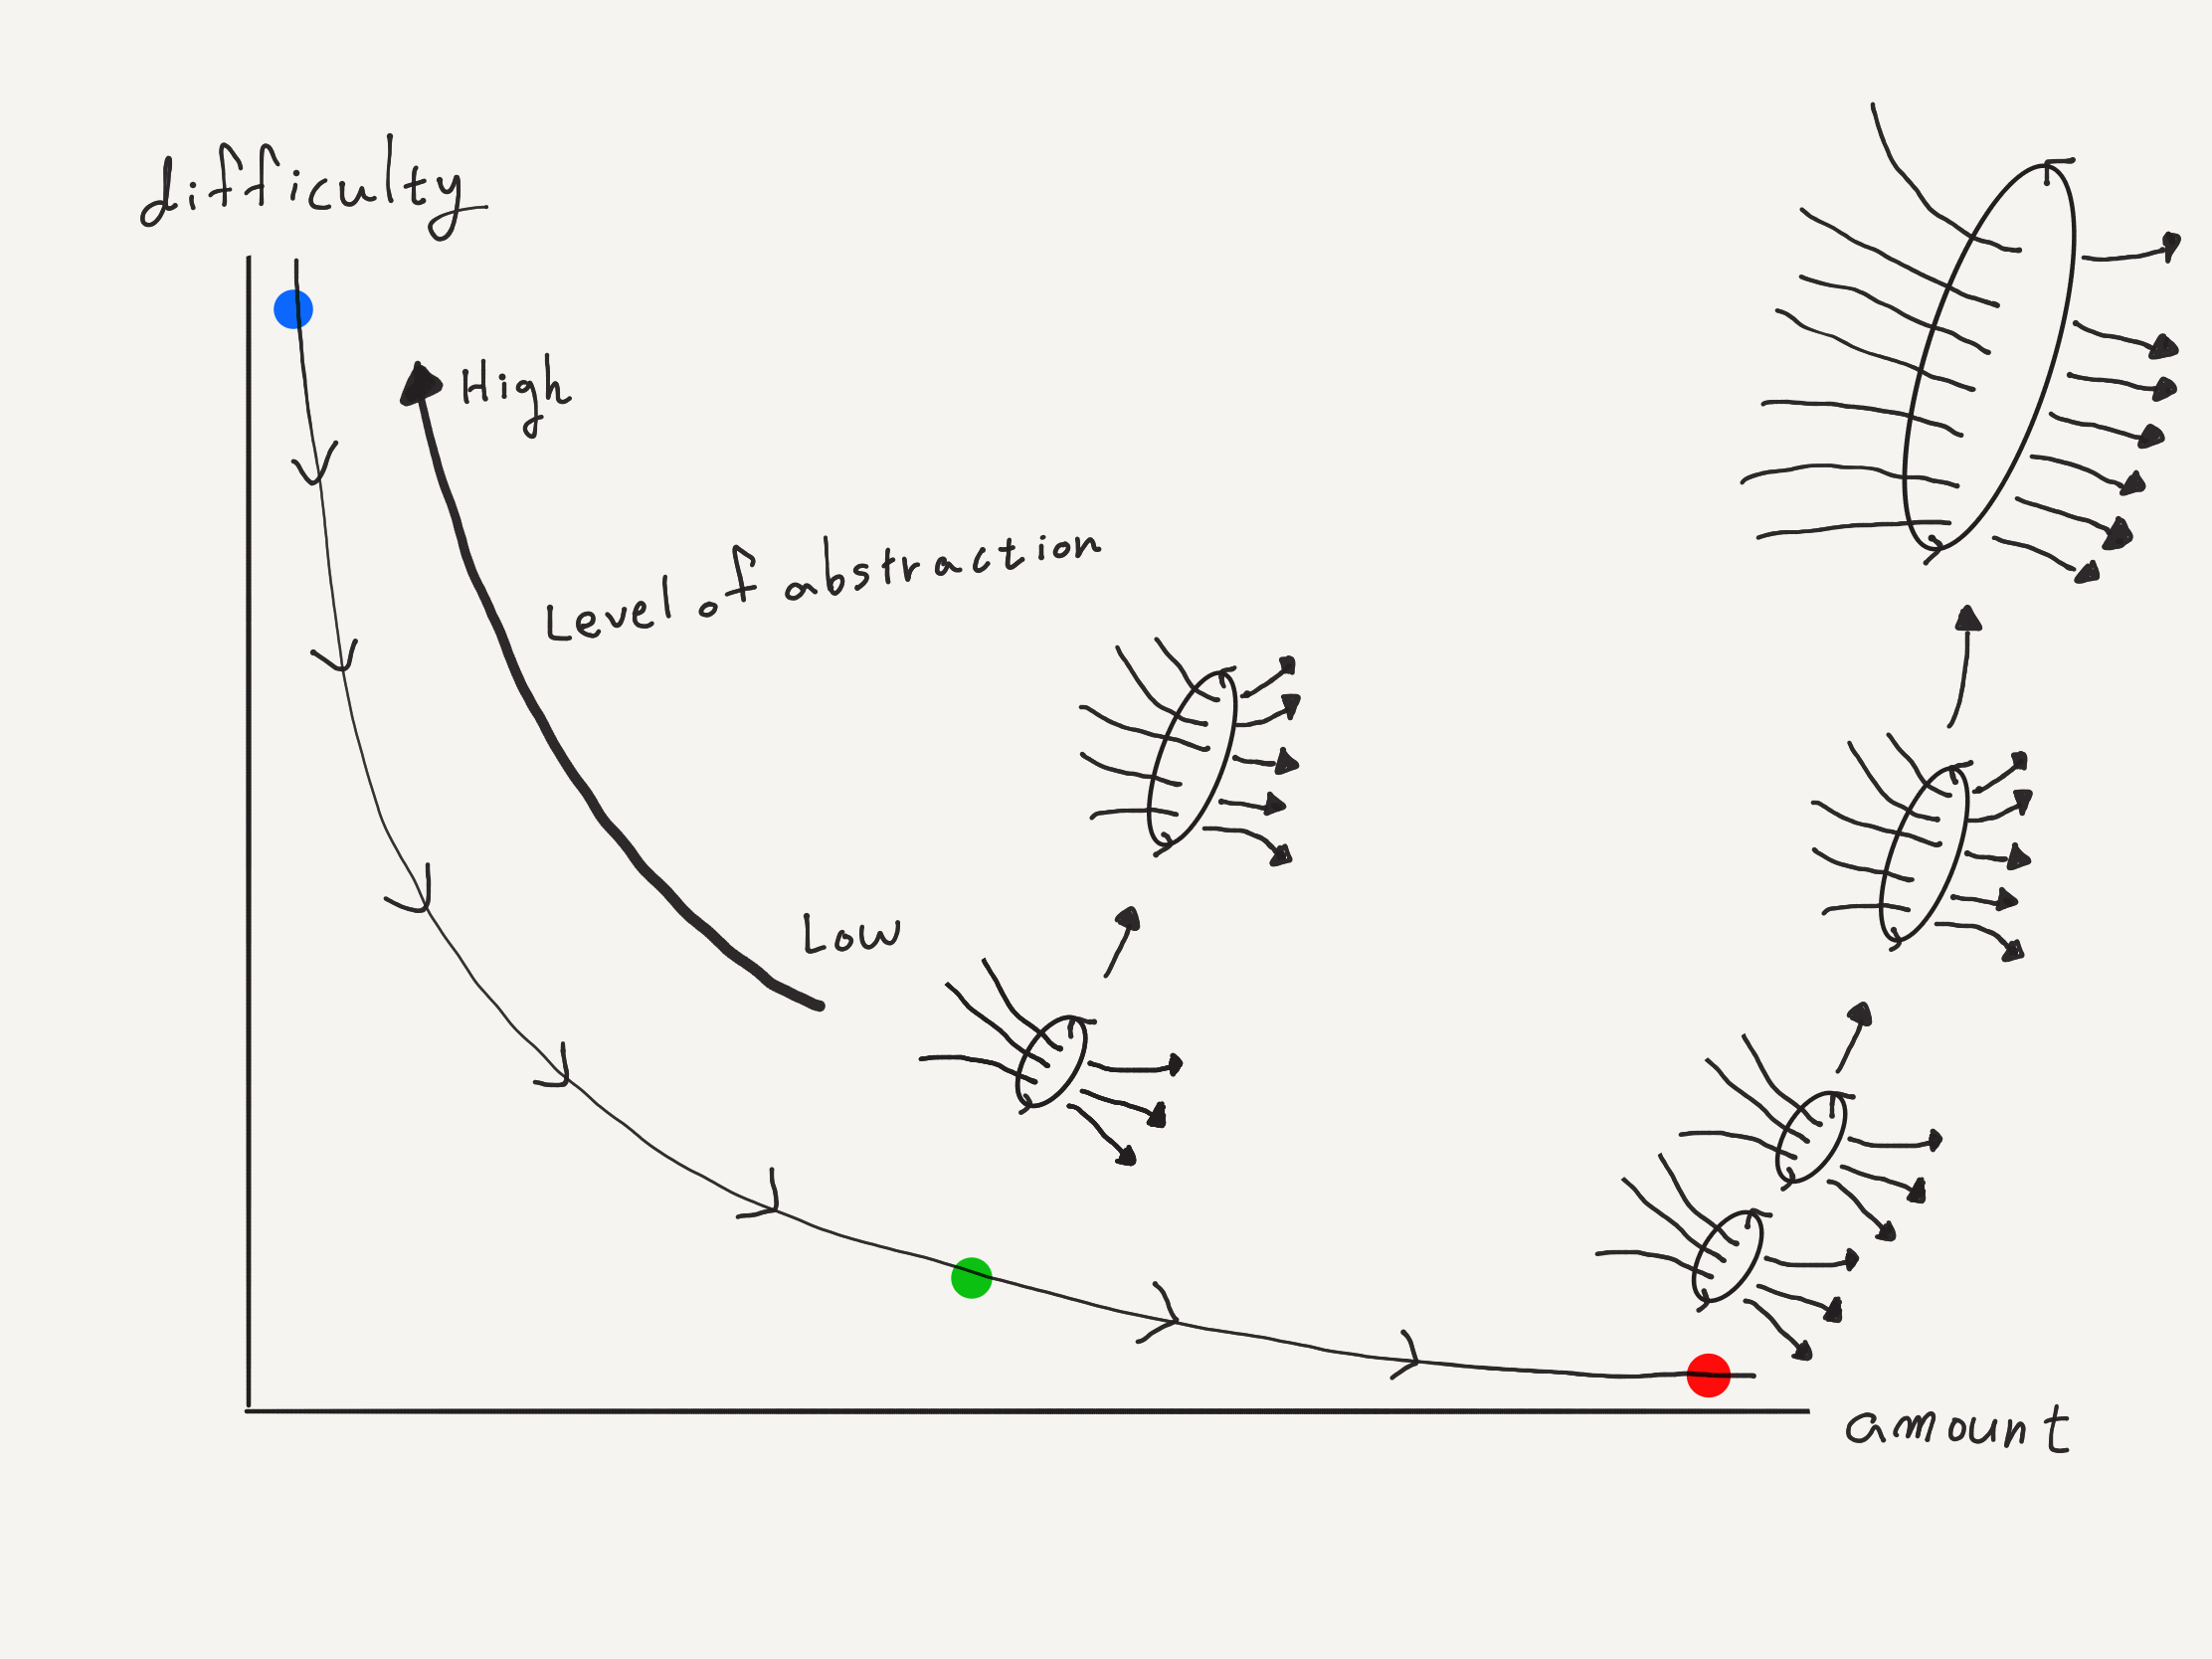 difficulty
High
Level of abstraction
Low
amount